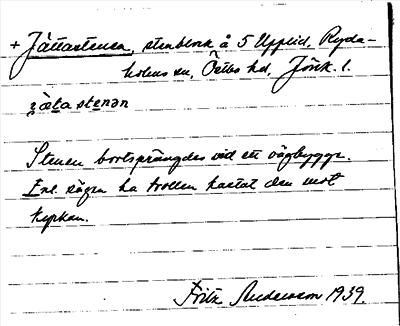 + Jättastenen, stenblock å 5 Upplid, Ryda-
holms sn, Östbo hd, Jönk. l.
jäta stenən
Stenen bortsprängdes vid ett vägbygge.
Enl. sägen ha trollen kastat den mot
kyrkan.
Fritz Andersson 1939.